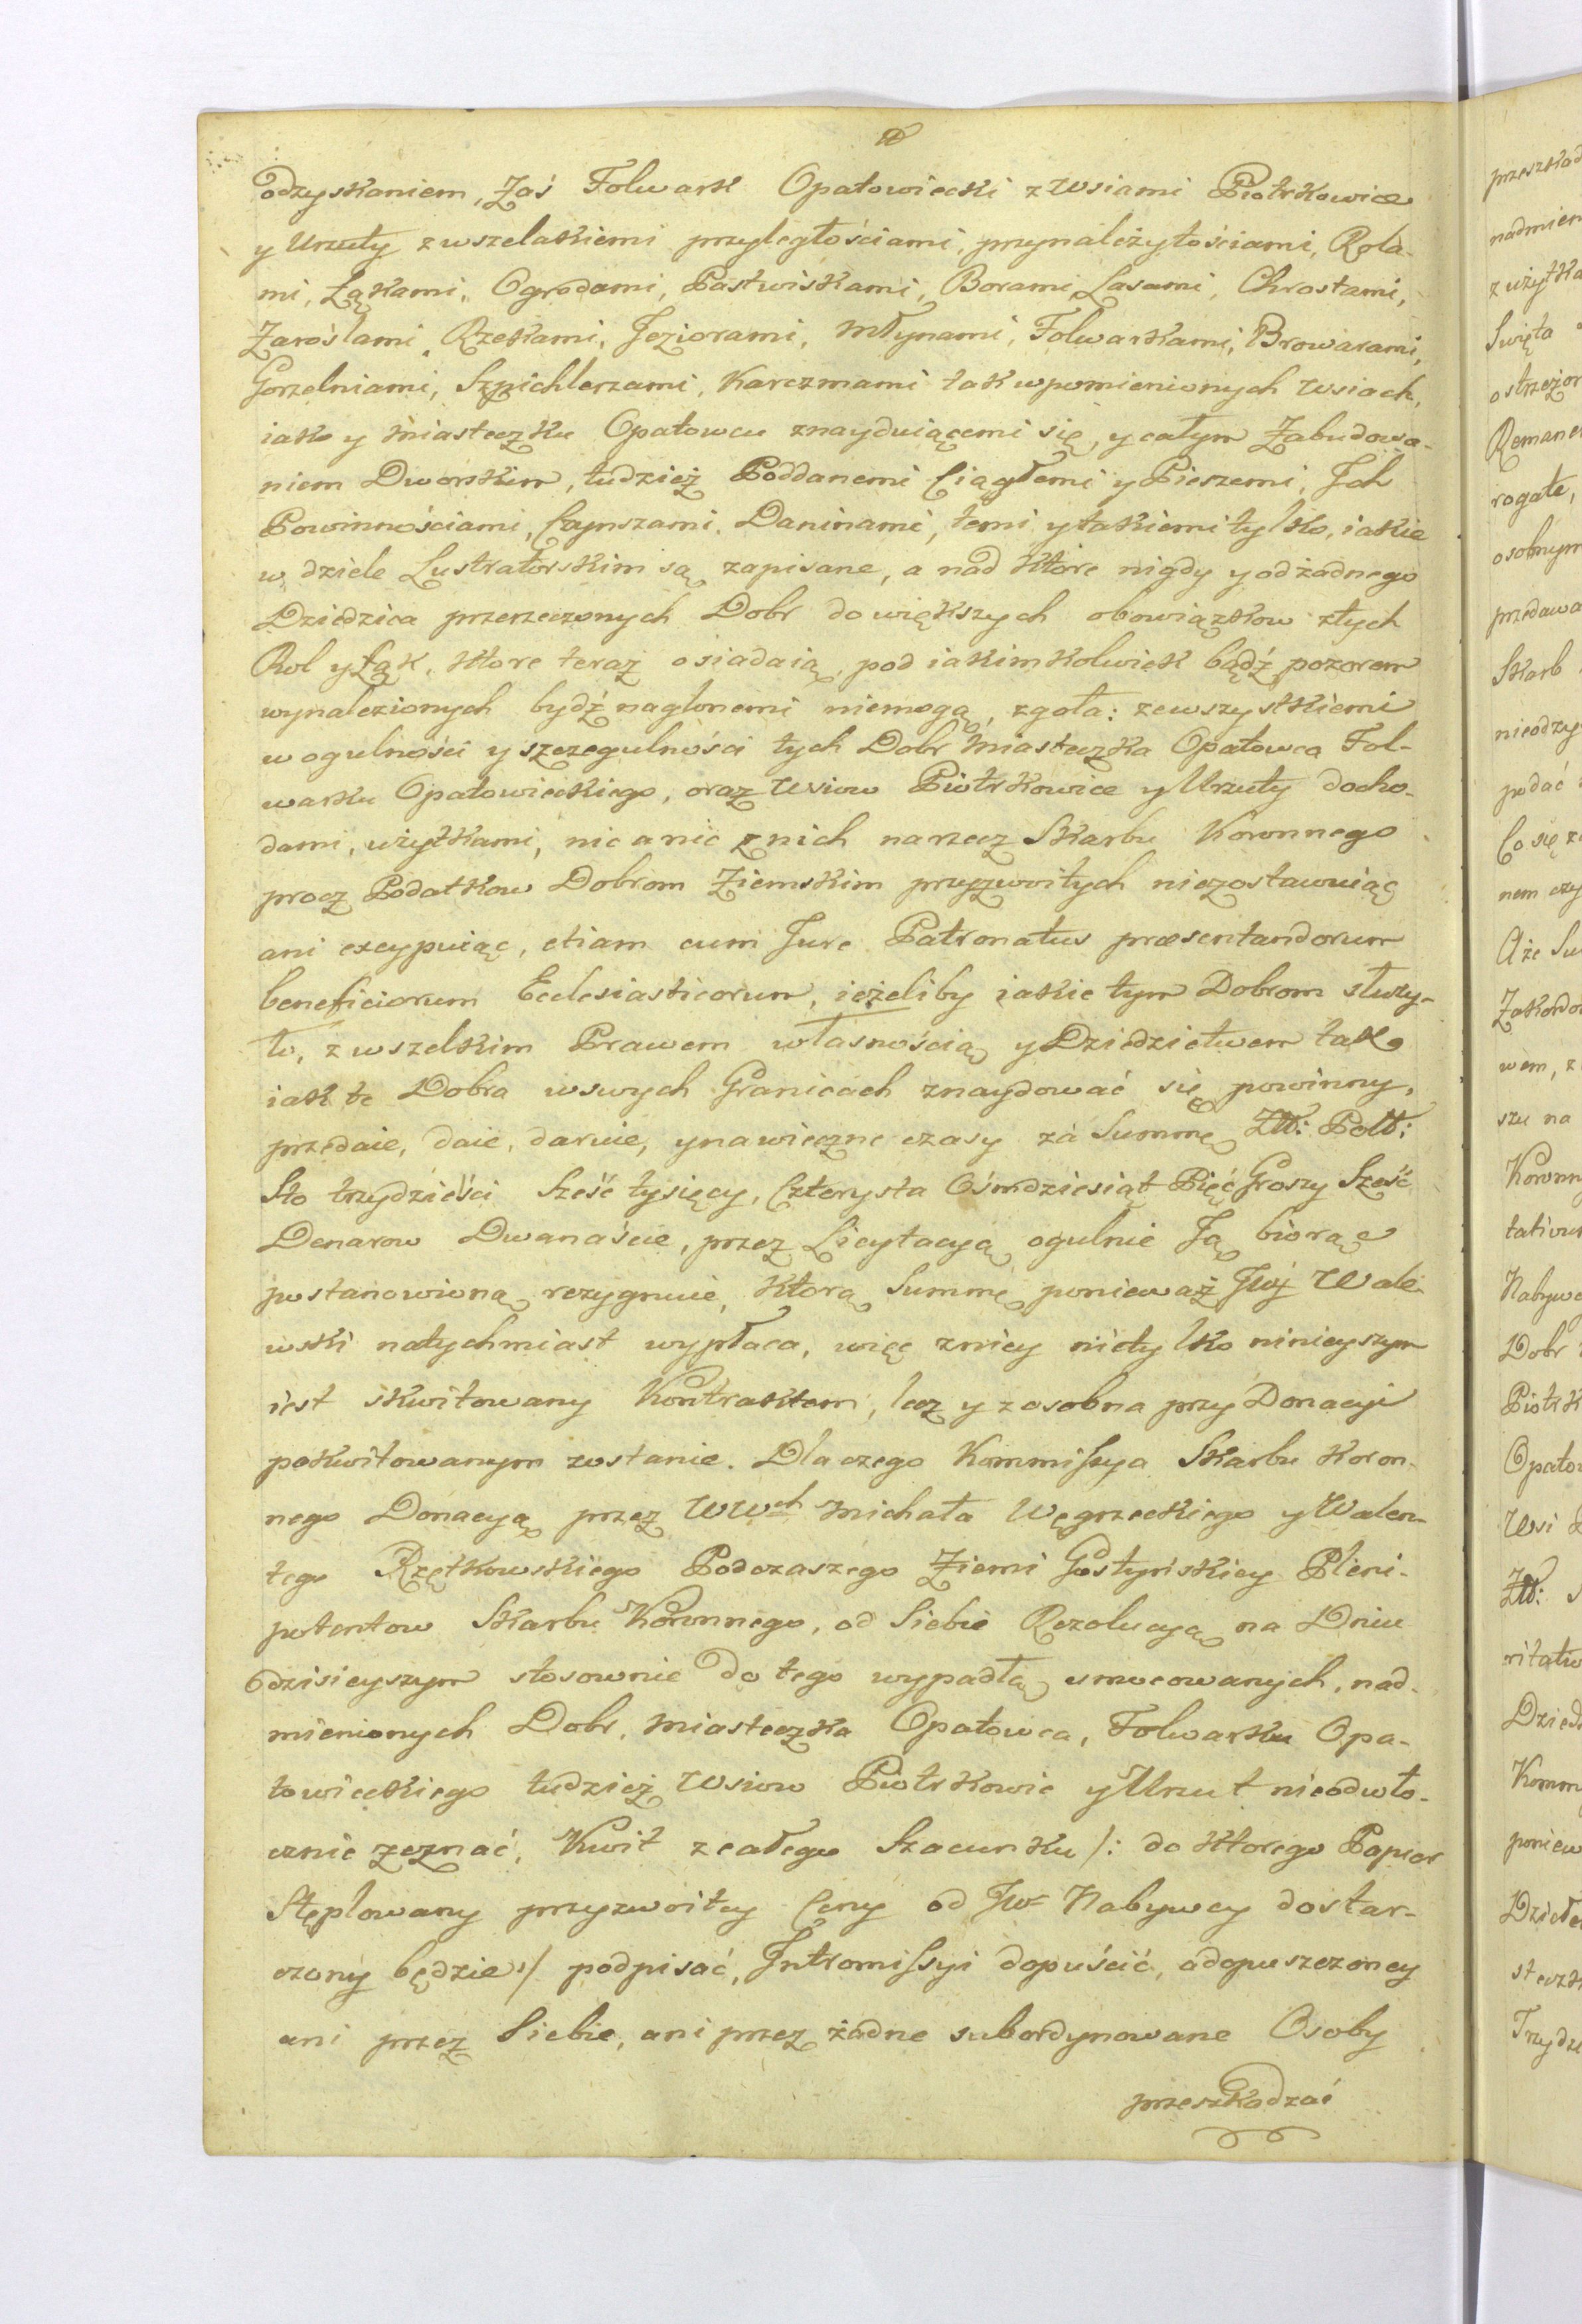 odzyskaniem, Zaś Folwark Opatowiecki z Wsiami Piotrkowice
y Urzuty z wszelakiemi przyległościami, przynależytościami, Rola-
mi, Łąkami, Ogrodami, Pastwiskami, Borami, Lasami, Chrostami,
Zaroślami, Rzekami, Jeziorami, Młynami, Folwarkami, Browarami,
Gorzelniami, Szpichlerzami, Karczmami tak w pomienionych Wsiach,
iako y Miasteczku Opatowcu znayduiącemi się, y całym Zabudowa-
niem Dworskim, tudzież Poddanemi Ciągłemi y Pieszemi, Ich
Powinnościami, Czynszami, Daninami, temi y takiemi tylko, iakie
w dziele Lustratorskim są zapisane, a nad ktore nigdy y od żadnego
Dziedzica przerzeczonych Dobr do większych obowiązkow z tych
Rol y Łąk, ktore teraz osiadaią, pod iakimkolwiek bądź pozorem
wynalezionych bydź naglonemi niemogą, zgoła: ze wszystkiemi
w ogulności y szczegulności tych Dobr Miasteczka Opatowca Fol-
warku Opatowieckiego, oraz Wsiow Piotrkowice y Urzuty docho-
dami, użytkami, nic a nic z nich na rzecz Skarbu Koronnego
procz Podatkow Dobrom Ziemskim przyzwoitych niezostawuiąc
ani excypuiąc, etiam cum Jure Patronatus præsentandorum
beneficiorum Ecclesiasticorum, ieżeliby iakie tym Dobrom służy-
ło, z wszelkim Prawem własnością y Dziedzictwem tak
iak te Dobra w swych Granicach znaydować się powinny,
przedaie, daie, daruie, y na wieczne czasy za Summę Złł: Polł:
Sto trzydzieści Sześć tysięcy, Czterysta Ośmdziesiąt Pięć Groszy Sześć
Denarow Dwanaście, przez Licytacyą ogulnie Ją biorąc
postanowioną rezygnuie, ktorą Summę ponieważ JWJ Wale-
wski natychmiast wypłaca, więc z niey nietylko ninieyszym
iest skwitowany Kontraktem, lecz y z osobna przy Donacyi
pokwitowanym zostanie. Dlaczego Kommissya Skarbu Koron-
nego Donacyą przez WWch Michała Węgrzeckiego y Walen-
tego Rzętkowskiego Podczaszego Ziemi Gostyńskiey Pleni-
potentow Skarbu Koronnego, od Siebie Rezolucyą na Dniu
dzisieyszym stosownie do tego wypadłą umocowanych, nad-
mienionych Dobr, Miasteczka Opatowca, Folwarku Opa-
towieckiego tudzież Wsiow Piotrkowic y Urzut nieodwło-
cznie zeznać, Kwit z całego Szacunku /: do ktorego Papier
Stęplowany przyzwoitey Ceny od JW Nabywcy dostar-
czony będzie :/ podpisać, Intromissyi dopuścić, a dopuszczoney
ani przez Siebie, ani przez żadne subordynowane Osoby
przeszkadzać